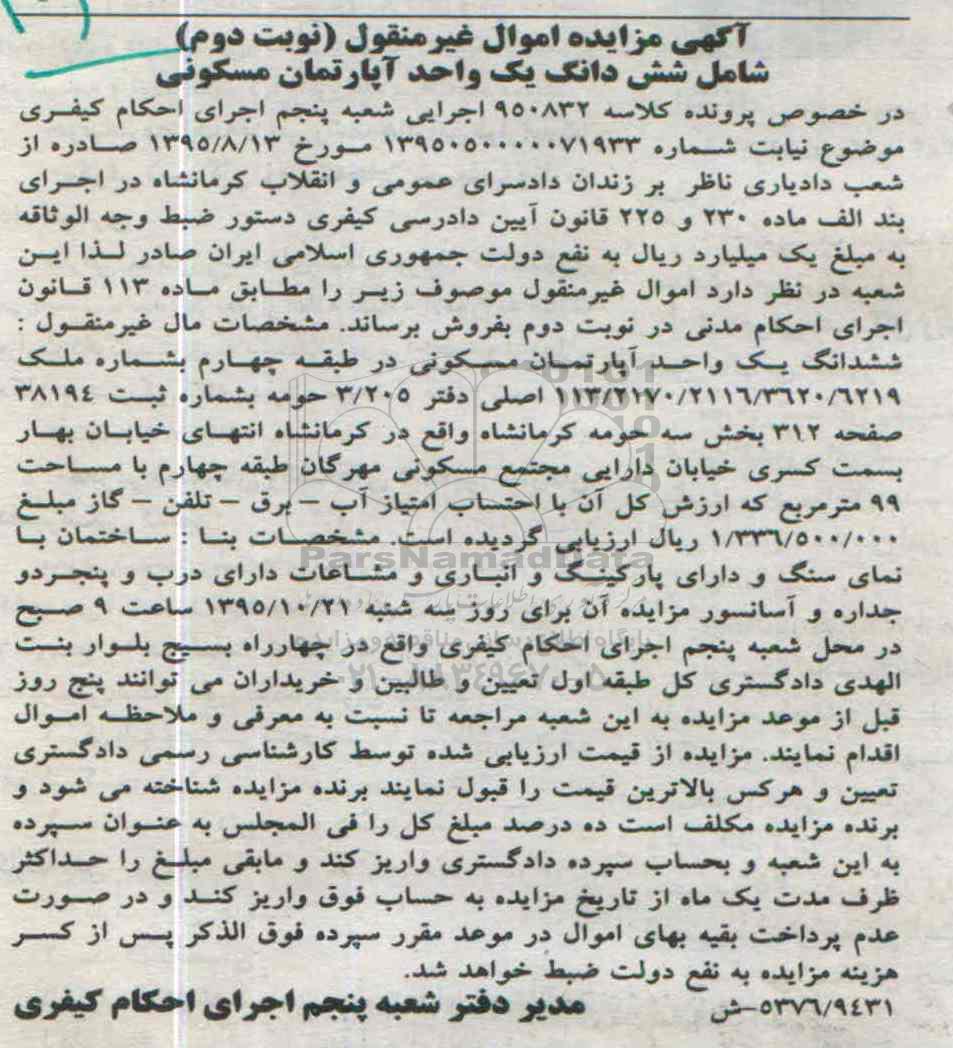 آگهی مزایده اموال غیرمنقول (نوبت دوم)
شامل شش دانگ یک واحد آپارتمان مسکونی
در خصوص پرونده کلاسه ۹۵۰۸۳۲ اجرایی شعبه پنجم اجرای احکام کیفری
موضوع نیابت شماره ۱۳۹۵۰۵۰۰۰۰۰۰۷۱۹۳۳ مورخ ۱۳۹۵/۸/۱۳ صادره از
شعب دادیاری ناظر بر زندان دادسرای عمومی و انقلاب کرمانشاه در اجرای
بند الف ماده ۲۳۰ و ۲۲۵ قانون آیین دادرسی کیفری دستور ضبط وجه الوثاقه
به مبلغ یک میلیارد ریال به نفع دولت جمهوری اسلامی ایران صادر لذا این
شعبه در نظر دارد اموال غیرمنقول موصوف زیر را مطابق ماده ۱۱۳ قانون
اجرای احکام مدنی در نوبت دوم بفروش برساند. مشخصات مال غیرمنقول :
ششدانگ یک واحد آپارتمان مسکونی در طبقه چهارم بشماره ملک
۱۱۳/۲۱۷۰/۲۱۱۶/۳۶۲۰/۶۲۱۹ اصلی دفتر ۳/۲۰۵ حومه بشماره ثبت ۳۸۱۹۴
صفحه ۳۱۲ بخش سه حومه کرمانشاه واقع در کرمانشاه انتهای خیابان بهار
بسمت کسری خیابان دارایی مجتمع مسکونی مهرگان طبقه چهارم با مساحت
۹۹ مترمربع که ارزش کل آن با احتساب امتیاز آب – برق – تلفن – گاز مبلغ
۱/۳۳۶/۵۰۰/۰۰۰ ریال ارزیابی گردیده است. مشخصات بنا : ساختمان با
نمای سنگ و دارای پارکینگ و انباری و مشاعات دارای درب و پنجردو
جداره و آسانسور مزایده آن برای روز سه شنبه ۱۳۹۵/۱۰/۲۱ ساعت ۹ صبح
در محل شعبه پنجم اجرای احکام کیفری واقع در چهارراه بسیج بلوار بنت
الهدی دادگستری کل طبقه اول تعیین و طالبین و خریداران می توانند پنج روز
قبل از موعد مزایده به این شعبه مراجعه تا نسبت به معرفی و ملاحظه اموال
اقدام نمایند. مزایده از قیمت ارزیابی شده توسط کارشناسی رسمی دادگستری
تعیین و هرکس بالاترین قیمت را قبول نمایند برنده مزایده شناخته می شود و
برنده مزایده مکلف است ده درصد مبلغ کل را فی المجلس به عنوان سپرده
به این شعبه و بحساب سپرده دادگستری واریز کند و مابقی مبلغ را حداکثر
ظرف مدت یک ماه از تاریخ مزایده به حساب فوق واریز کند و در صورت
عدم پرداخت بقیه بهای اموال در موعد مقرر سپرده فوق الذکر پس از کسر
هزینه مزایده به نفع دولت ضبط خواهد شد.
۵۳۷۶/۹۴۳۱-ش مدیر دفتر شعبه پنجم اجرای احکام کیفری
ParsNamadData